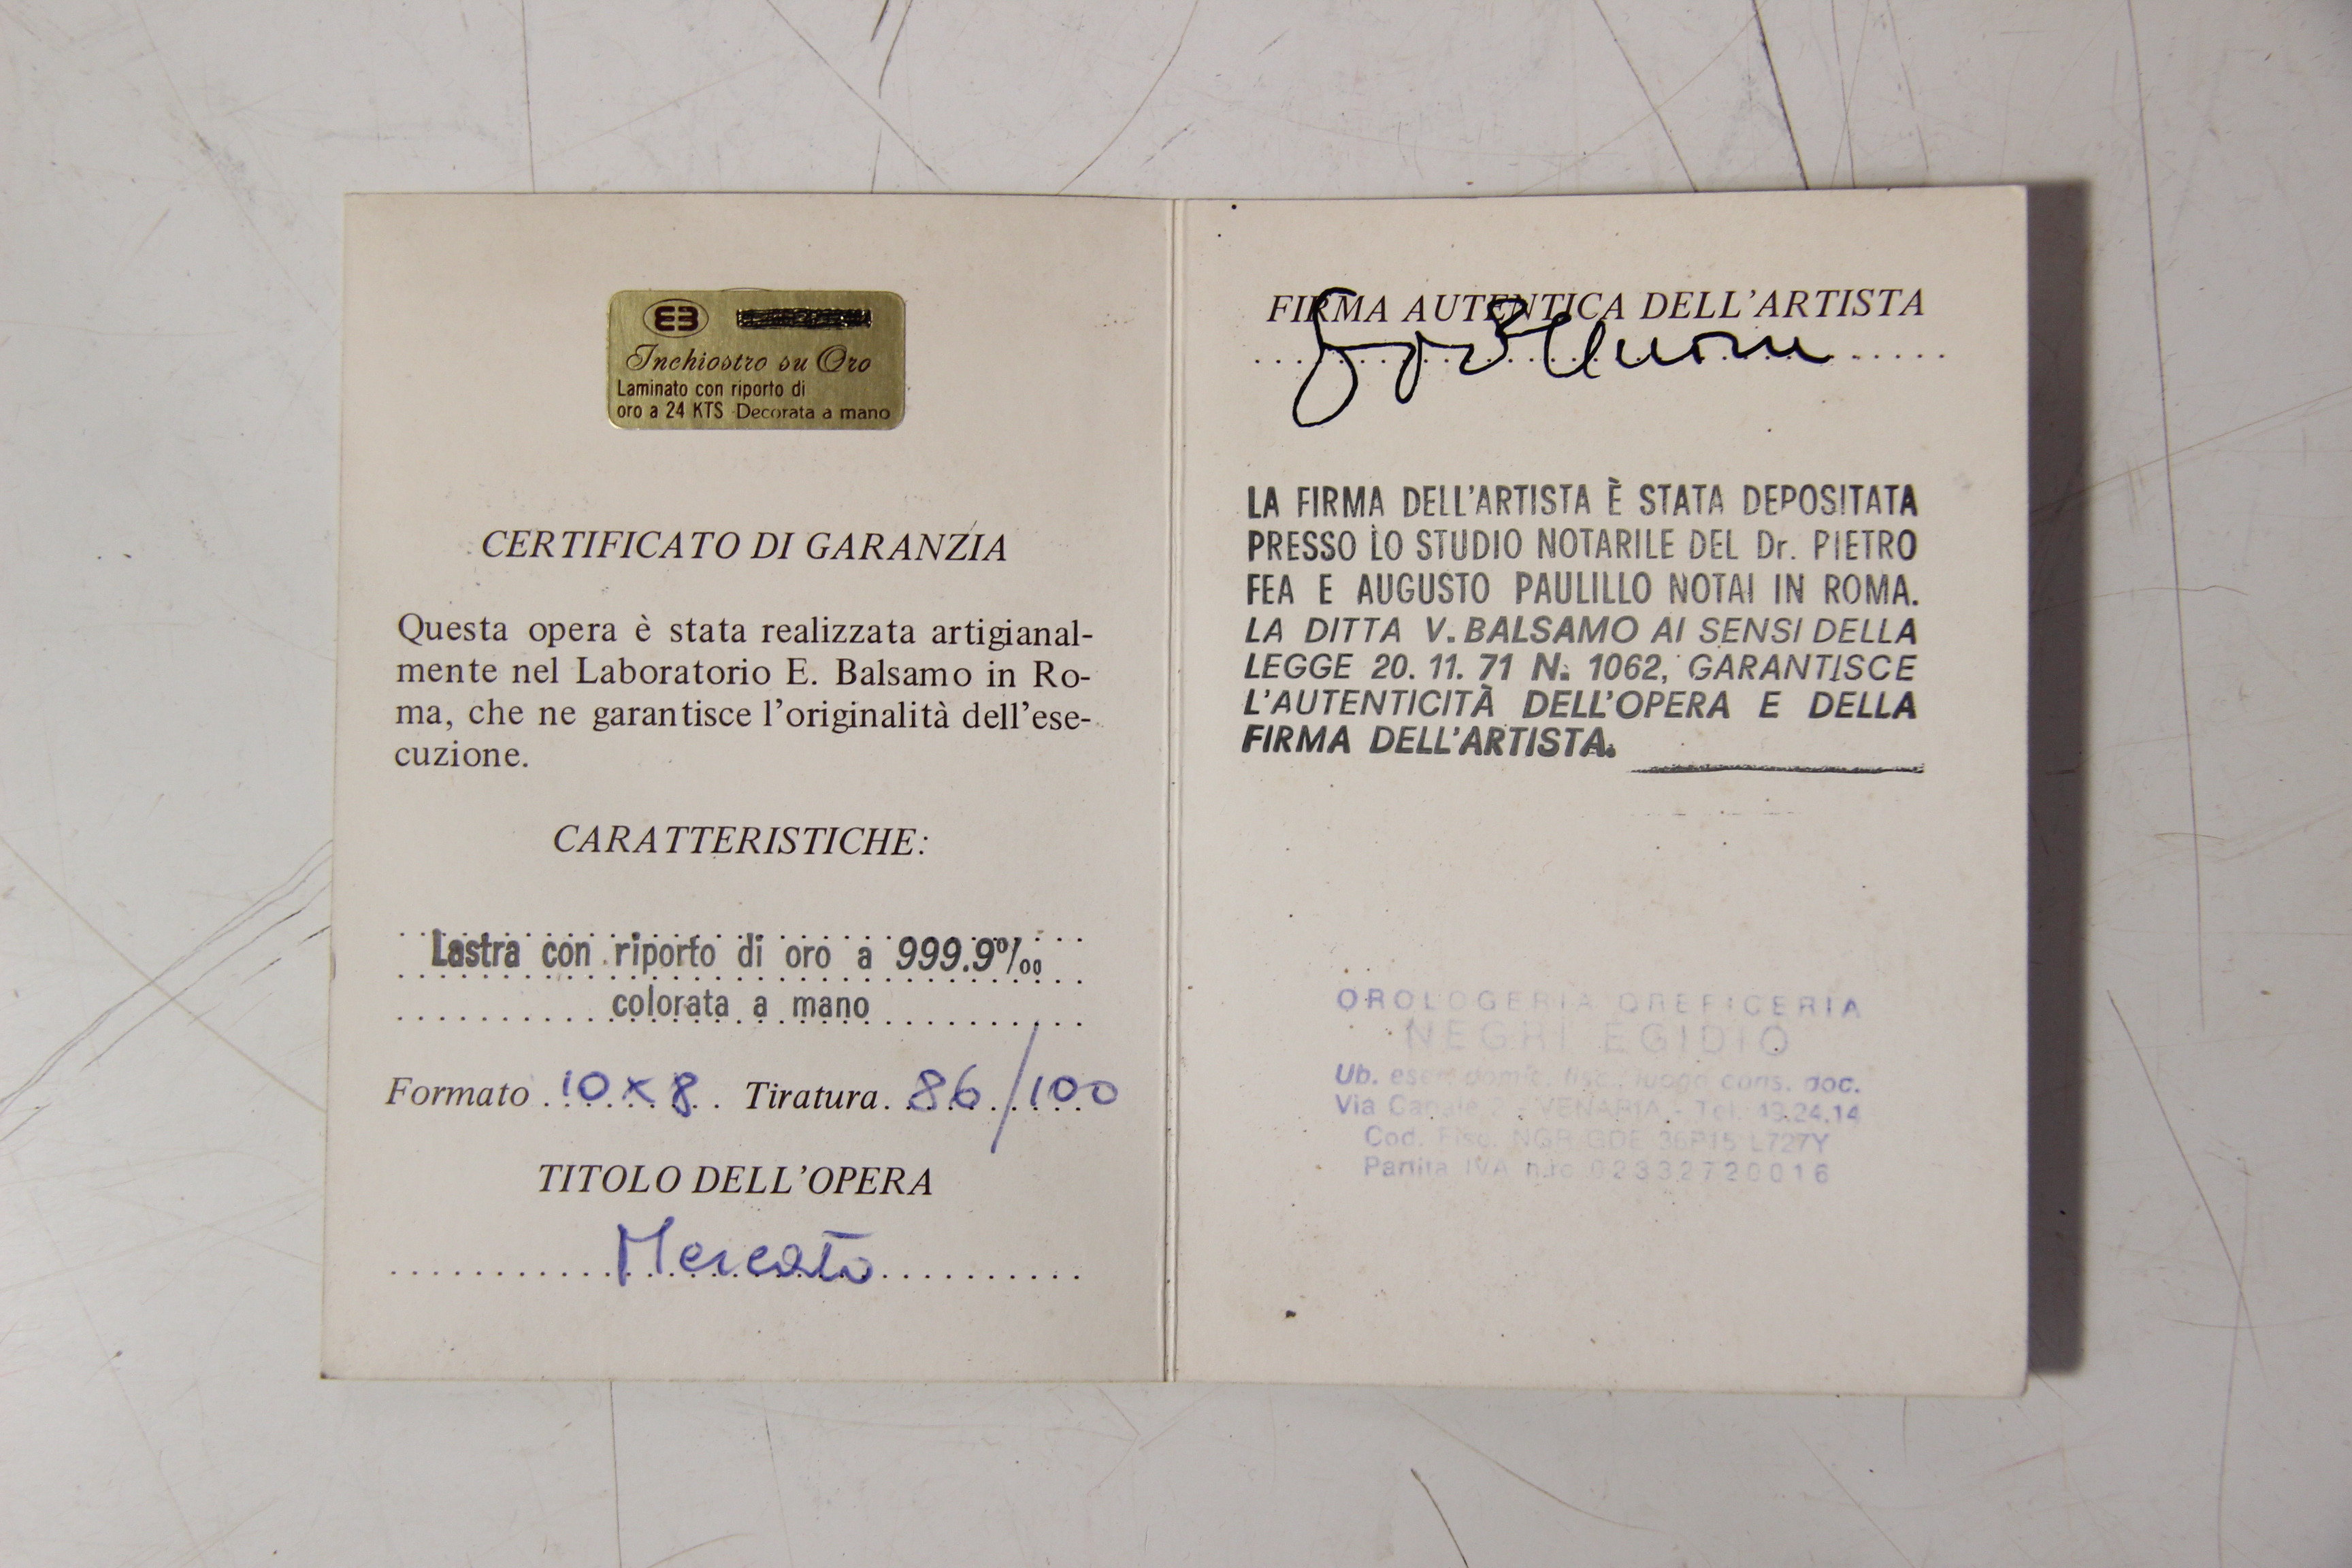 EB
Inchiostro su Oro
Laminato con riporto di
oro a 24 KTS Decorata a mano
CERTIFICATO DI GARANZIA
Questa opera è stata realizzata artigianal-
mente nel Laboratorio E. Balsamo in Ro-
ma, che ne garantisce l'originalità dell'ese-
cuzione.
CARATTERISTICHE:
Lastra con riporto di oro a 999.9‰
colorata a mano
Formato 10x8 Tiratura 86/100
TITOLO DELL'OPERA
Mercato
FIRMA AUTENTICA DELL'ARTISTA
LA FIRMA DELL'ARTISTA È STATA DEPOSITATA
PRESSO LO STUDIO NOTARILE DEL Dr. PIETRO
FEA E AUGUSTO PAULILLO NOTAI IN ROMA.
LA DITTA V. BALSAMO AI SENSI DELLA
LEGGE 20. 11. 71 N. 1062, GARANTISCE
L'AUTENTICITÀ DELL'OPERA E DELLA
FIRMA DELL'ARTISTA.
OROLOGERIA OREFICERIA
NEGRI EGIDIO
Ub. eserc. domic. fisc. luogo cons. doc.
Via Canale 2 - VENARIA - Tel. 49.24.14
Cod. Fisc. NGR GDE 36P15 L727Y
Partita IVA n.ro 02332720016